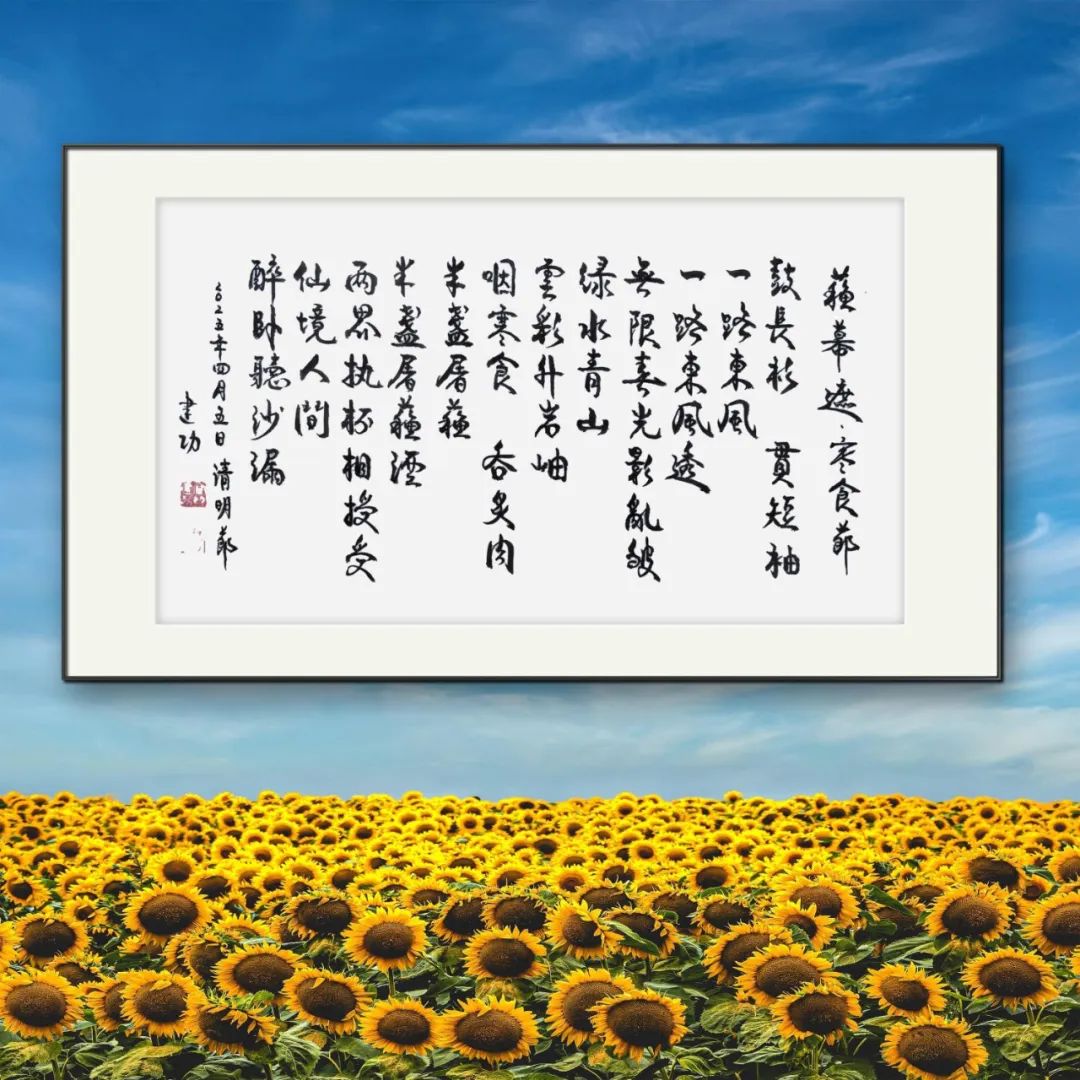 蘓幕遮、寒食節
鼓長衫 貫短袖
一路東風
一路東風透
無限春光影亂皱
绿水青山
雲彩升岩岫
咽寒食 吞炙肉
半盞屠蘓
半盞屠蘓酒
两界执杯相授受
仙境人間
醉卧聽沙漏
二〇二五年四月五日 清明節
建功